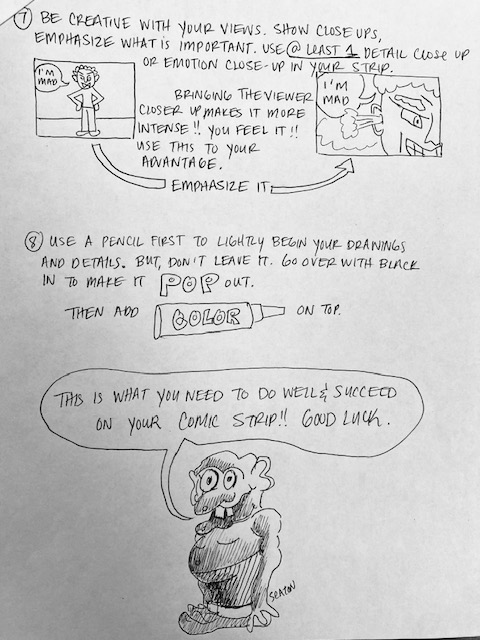 7 BE CREATIVE WITH YOUR VIEWS. SHOW CLOSE UPS,
EMPHASIZE WHAT IS IMPORTANT. USE @ LEAST 1 DETAIL CLOSE UP
OR EMOTION CLOSE-UP IN YOUR STRIP.
I'M
MAD
BRINGING THE VIEWER
CLOSER UP MAKES IT MORE
INTENSE!! YOU FEEL IT!!
USE THIS TO YOUR
ADVANTAGE.
I'M
MAD
EMPHASIZE IT
8 USE A PENCIL FIRST TO LIGHTLY BEGIN YOUR DRAWINGS
AND DETAILS. BUT, DON'T LEAVE IT. GO OVER WITH BLACK
IN TO MAKE IT POP OUT.
THEN ADD COLOR ON TOP.
THIS IS WHAT YOU NEED TO DO WELL & SUCCEED
ON YOUR COMIC STRIP!! GOOD LUCK.
SEATON